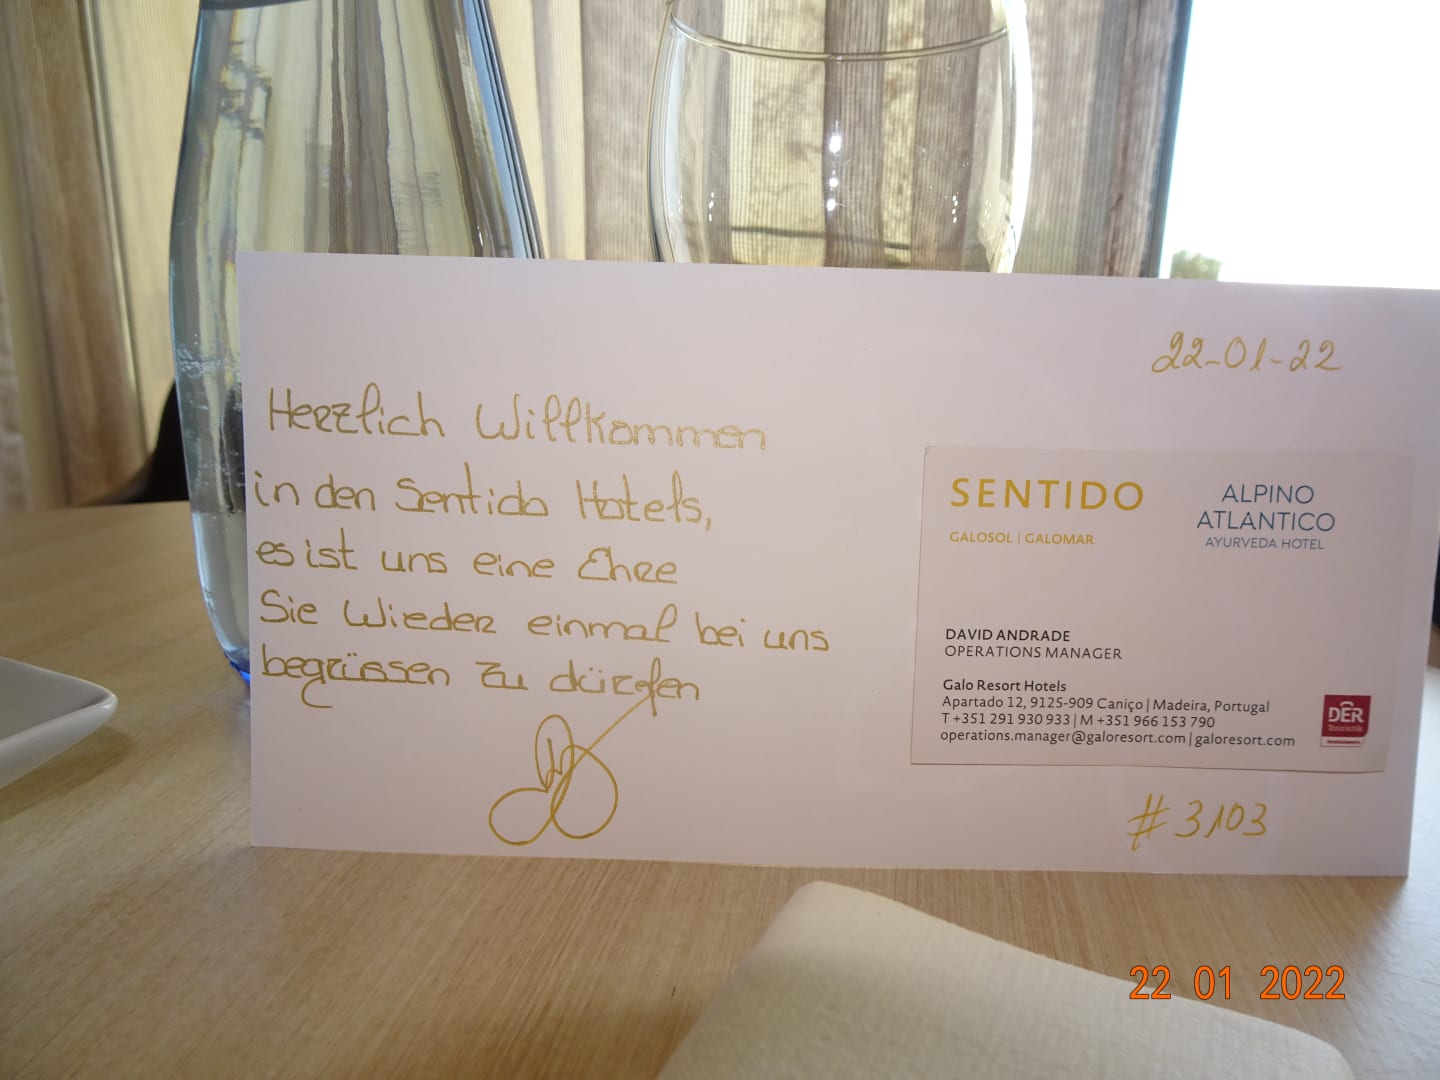 22-01-22
Herzlich Willkommen
in den Sentido Hotels,
es ist uns eine Ehre
Sie Wieder einmal bei uns
begrüssen zu dürfen
SENTIDO
GALOSOL | GALOMAR
ALPINO
ATLÂNTICO
AYURVEDA HOTEL
DAVID ANDRADE
OPERATIONS MANAGER
Galo Resort Hotels
Apartado 12, 9125-909 Caniço | Madeira, Portugal
T +351 291 930 933 | M +351 966 153 790
operations.manager@galoresort.com | galoresort.com
DER
Touristik
# 3103
22 01 2022